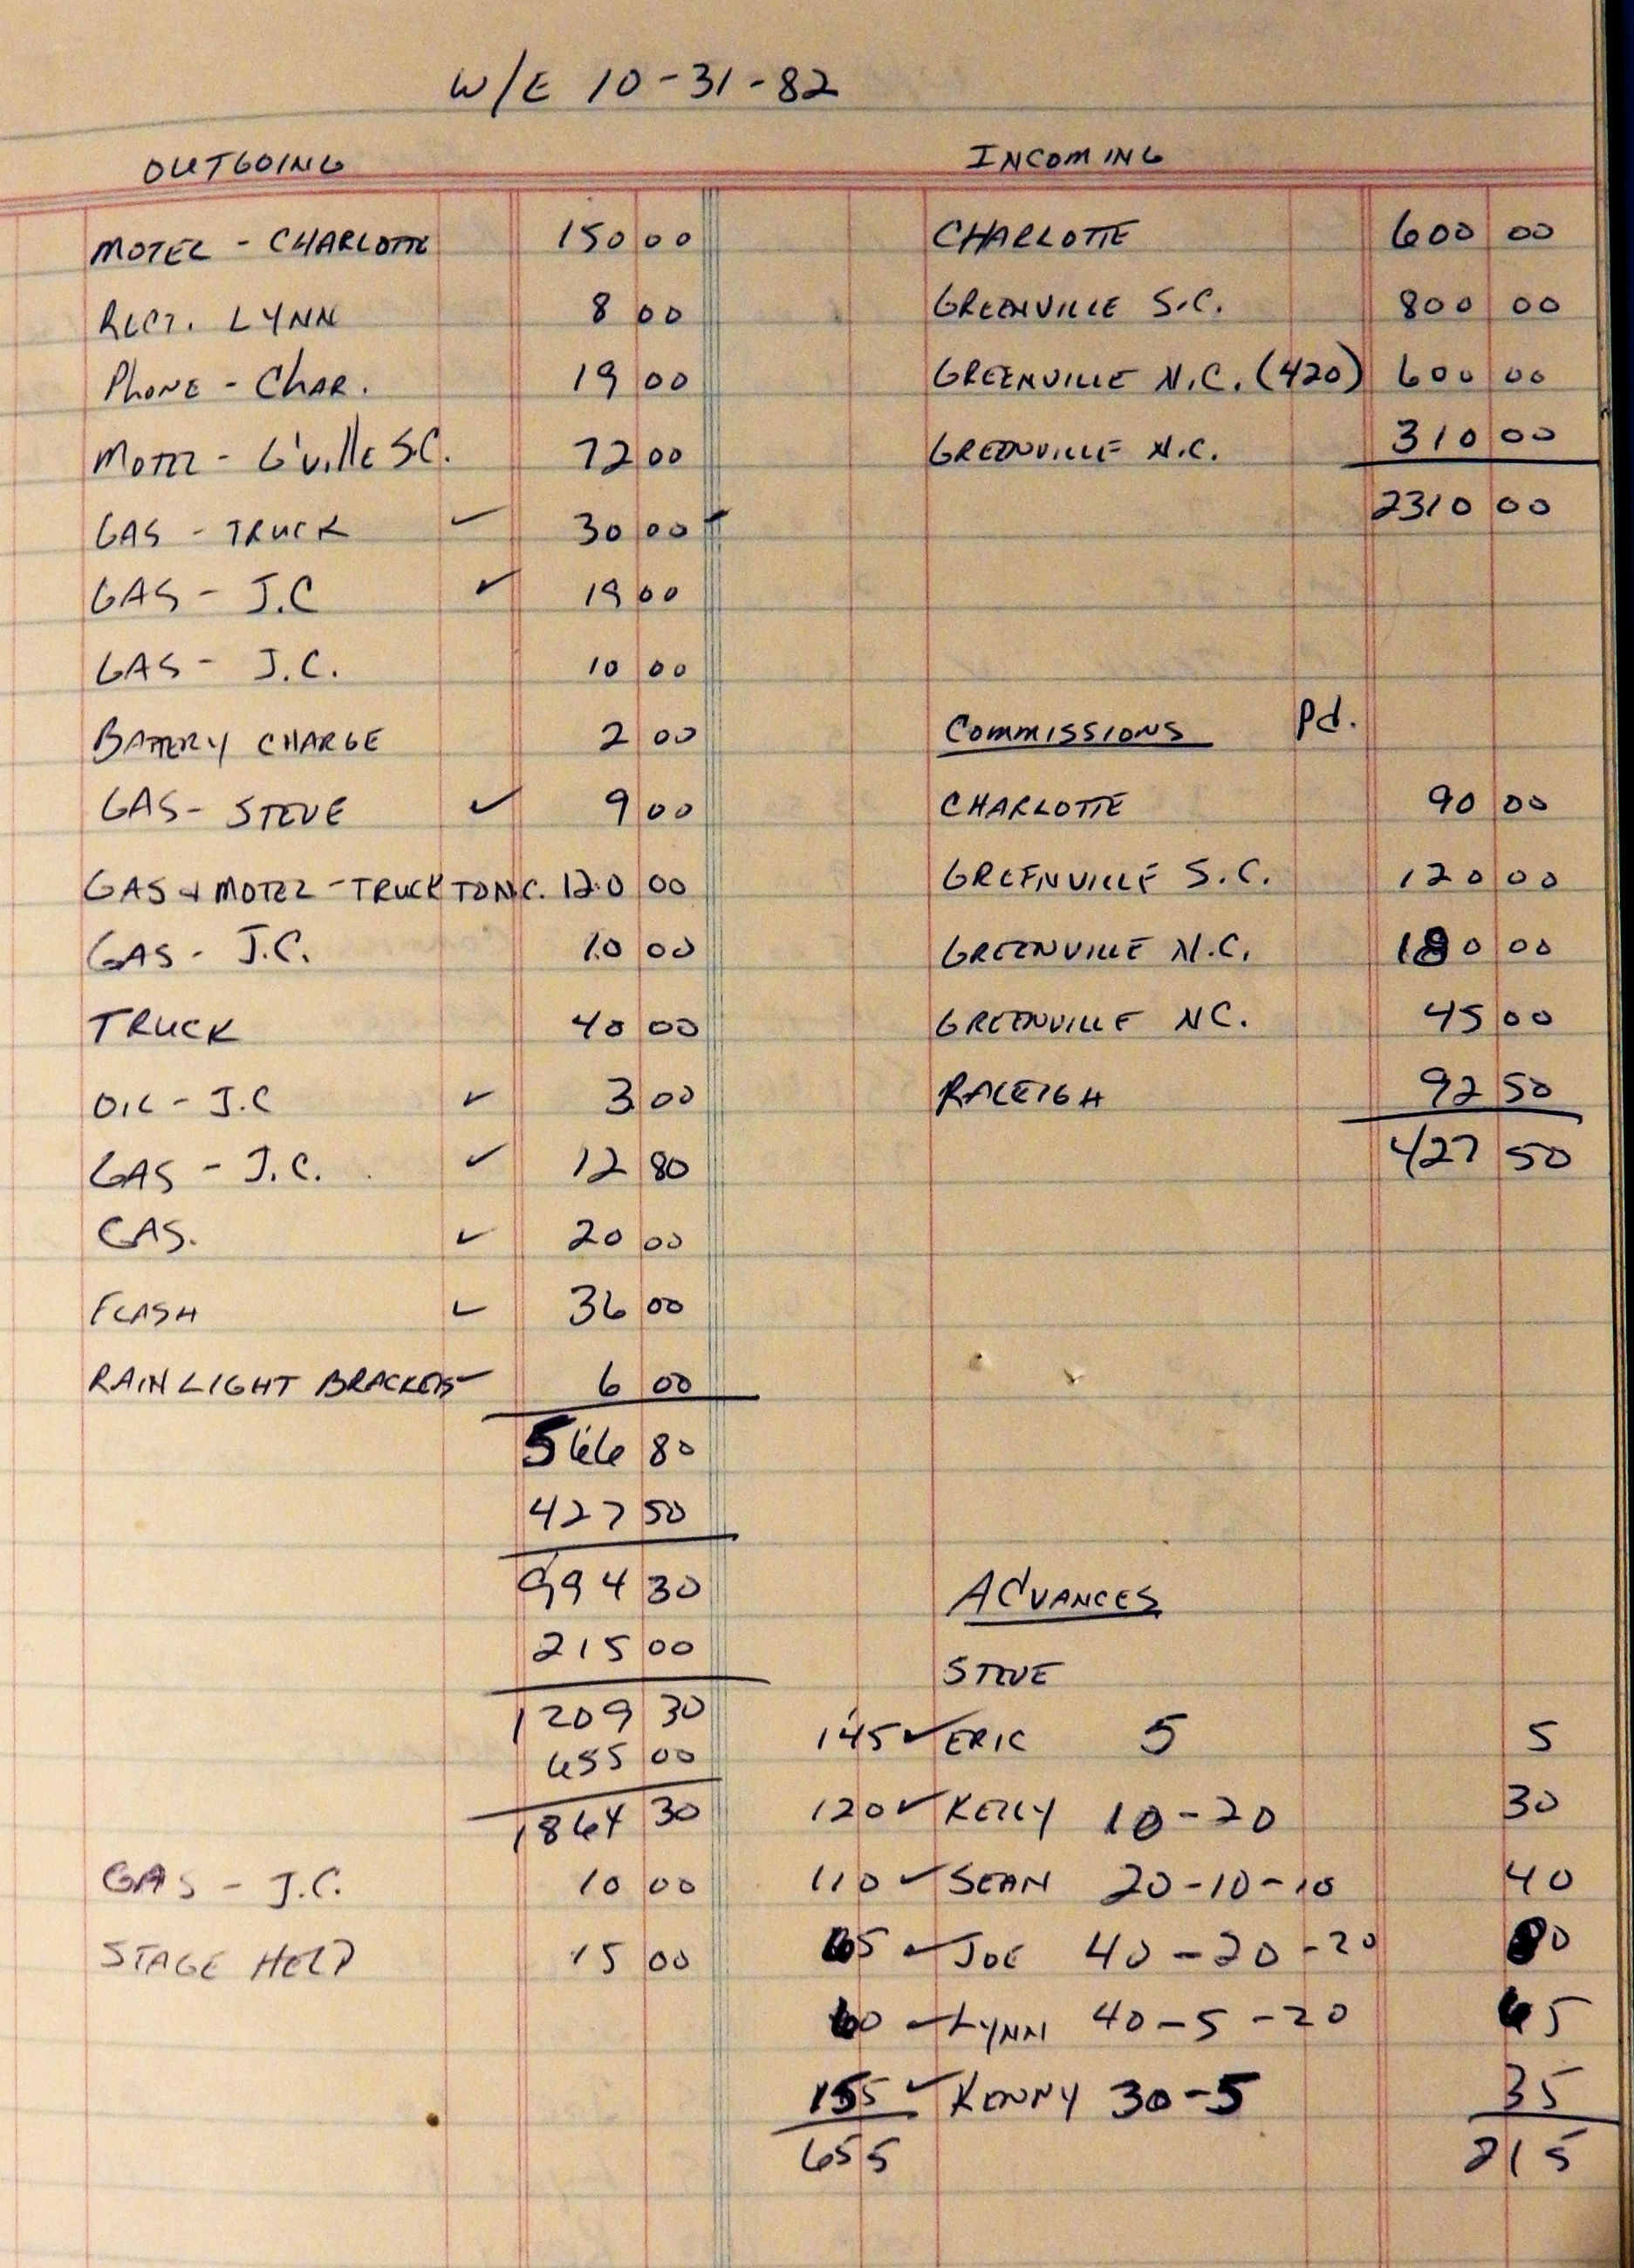 W/E 10-31-82
OUTGOING
MOTEL - CHARLOTTE 150 00
RECT. LYNN 8 00
PHONE - CHAR. 19 00
MOTEL - G'VILLE S.C. 72 00
GAS - TRUCK ✓ 30 00
GAS - J.C ✓ 19 00
GAS - J.C. 10 00
BATTERY CHARGE 2 00
GAS - STEVE ✓ 9 00
GAS & MOTEL - TRUCK TO N.C. 120 00
GAS - J.C. 10 00
TRUCK 40 00
OIL - J.C ✓ 3 00
GAS - J.C. ✓ 12 80
GAS. ✓ 20 00
FLASH ✓ 36 00
RAIN LIGHT BRACKETS ✓ 6 00
566 80
427 50
994 30
215 00
1209 30
655 00
1864 30
GAS - J.C. 10 00
STAGE HELP 15 00
INCOMING
CHARLOTTE 600 00
GREENVILLE S.C. 800 00
GREENVILLE N.C. (420) 600 00
GREENVILLE N.C. 310 00
2310 00
COMMISSIONS Pd.
CHARLOTTE 90 00
GREENVILLE S.C. 120 00
GREENVILLE N.C. 180 00
GREENVILLE NC. 45 00
RALEIGH 92 50
427 50
ADVANCES
STEVE
145 ✓ ERIC 5 5
120 ✓ KELLY 10-20 30
110 ✓ SEAN 20-10-10 40
65 ✓ JOE 40-20-20 80
60 ✓ LYNN 40-5-20 65
155 ✓ KENNY 30-5 35
655 215